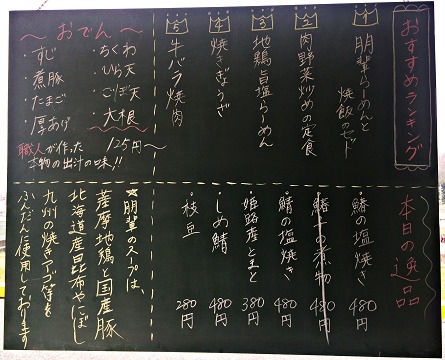 おすすめランキング
1 朋輩らーめんと
焼飯のセット
2 肉野菜炒めの定食
3 地鶏旨塩らーめん
4 焼きぎょうざ
5 牛バラ焼肉
〜おでん〜
・すじ
・煮豚
・たまご
・厚あげ
・ちくわ
・ひら天
・ごぼ天
・大根
125円〜
職人が作った
本物の出汁の味!!
本日の逸品
・鰆の塩焼き 480円
・鰆の煮物 480円
・鯖の塩焼き 480円
・姫路産とまと 380円
・しめ鯖 480円
・枝豆 280円
☆朋輩のスープは、
薩摩地鶏と国産豚
北海道産昆布やにぼし
九州の焼きアゴ等を
ふんだんに使用しております